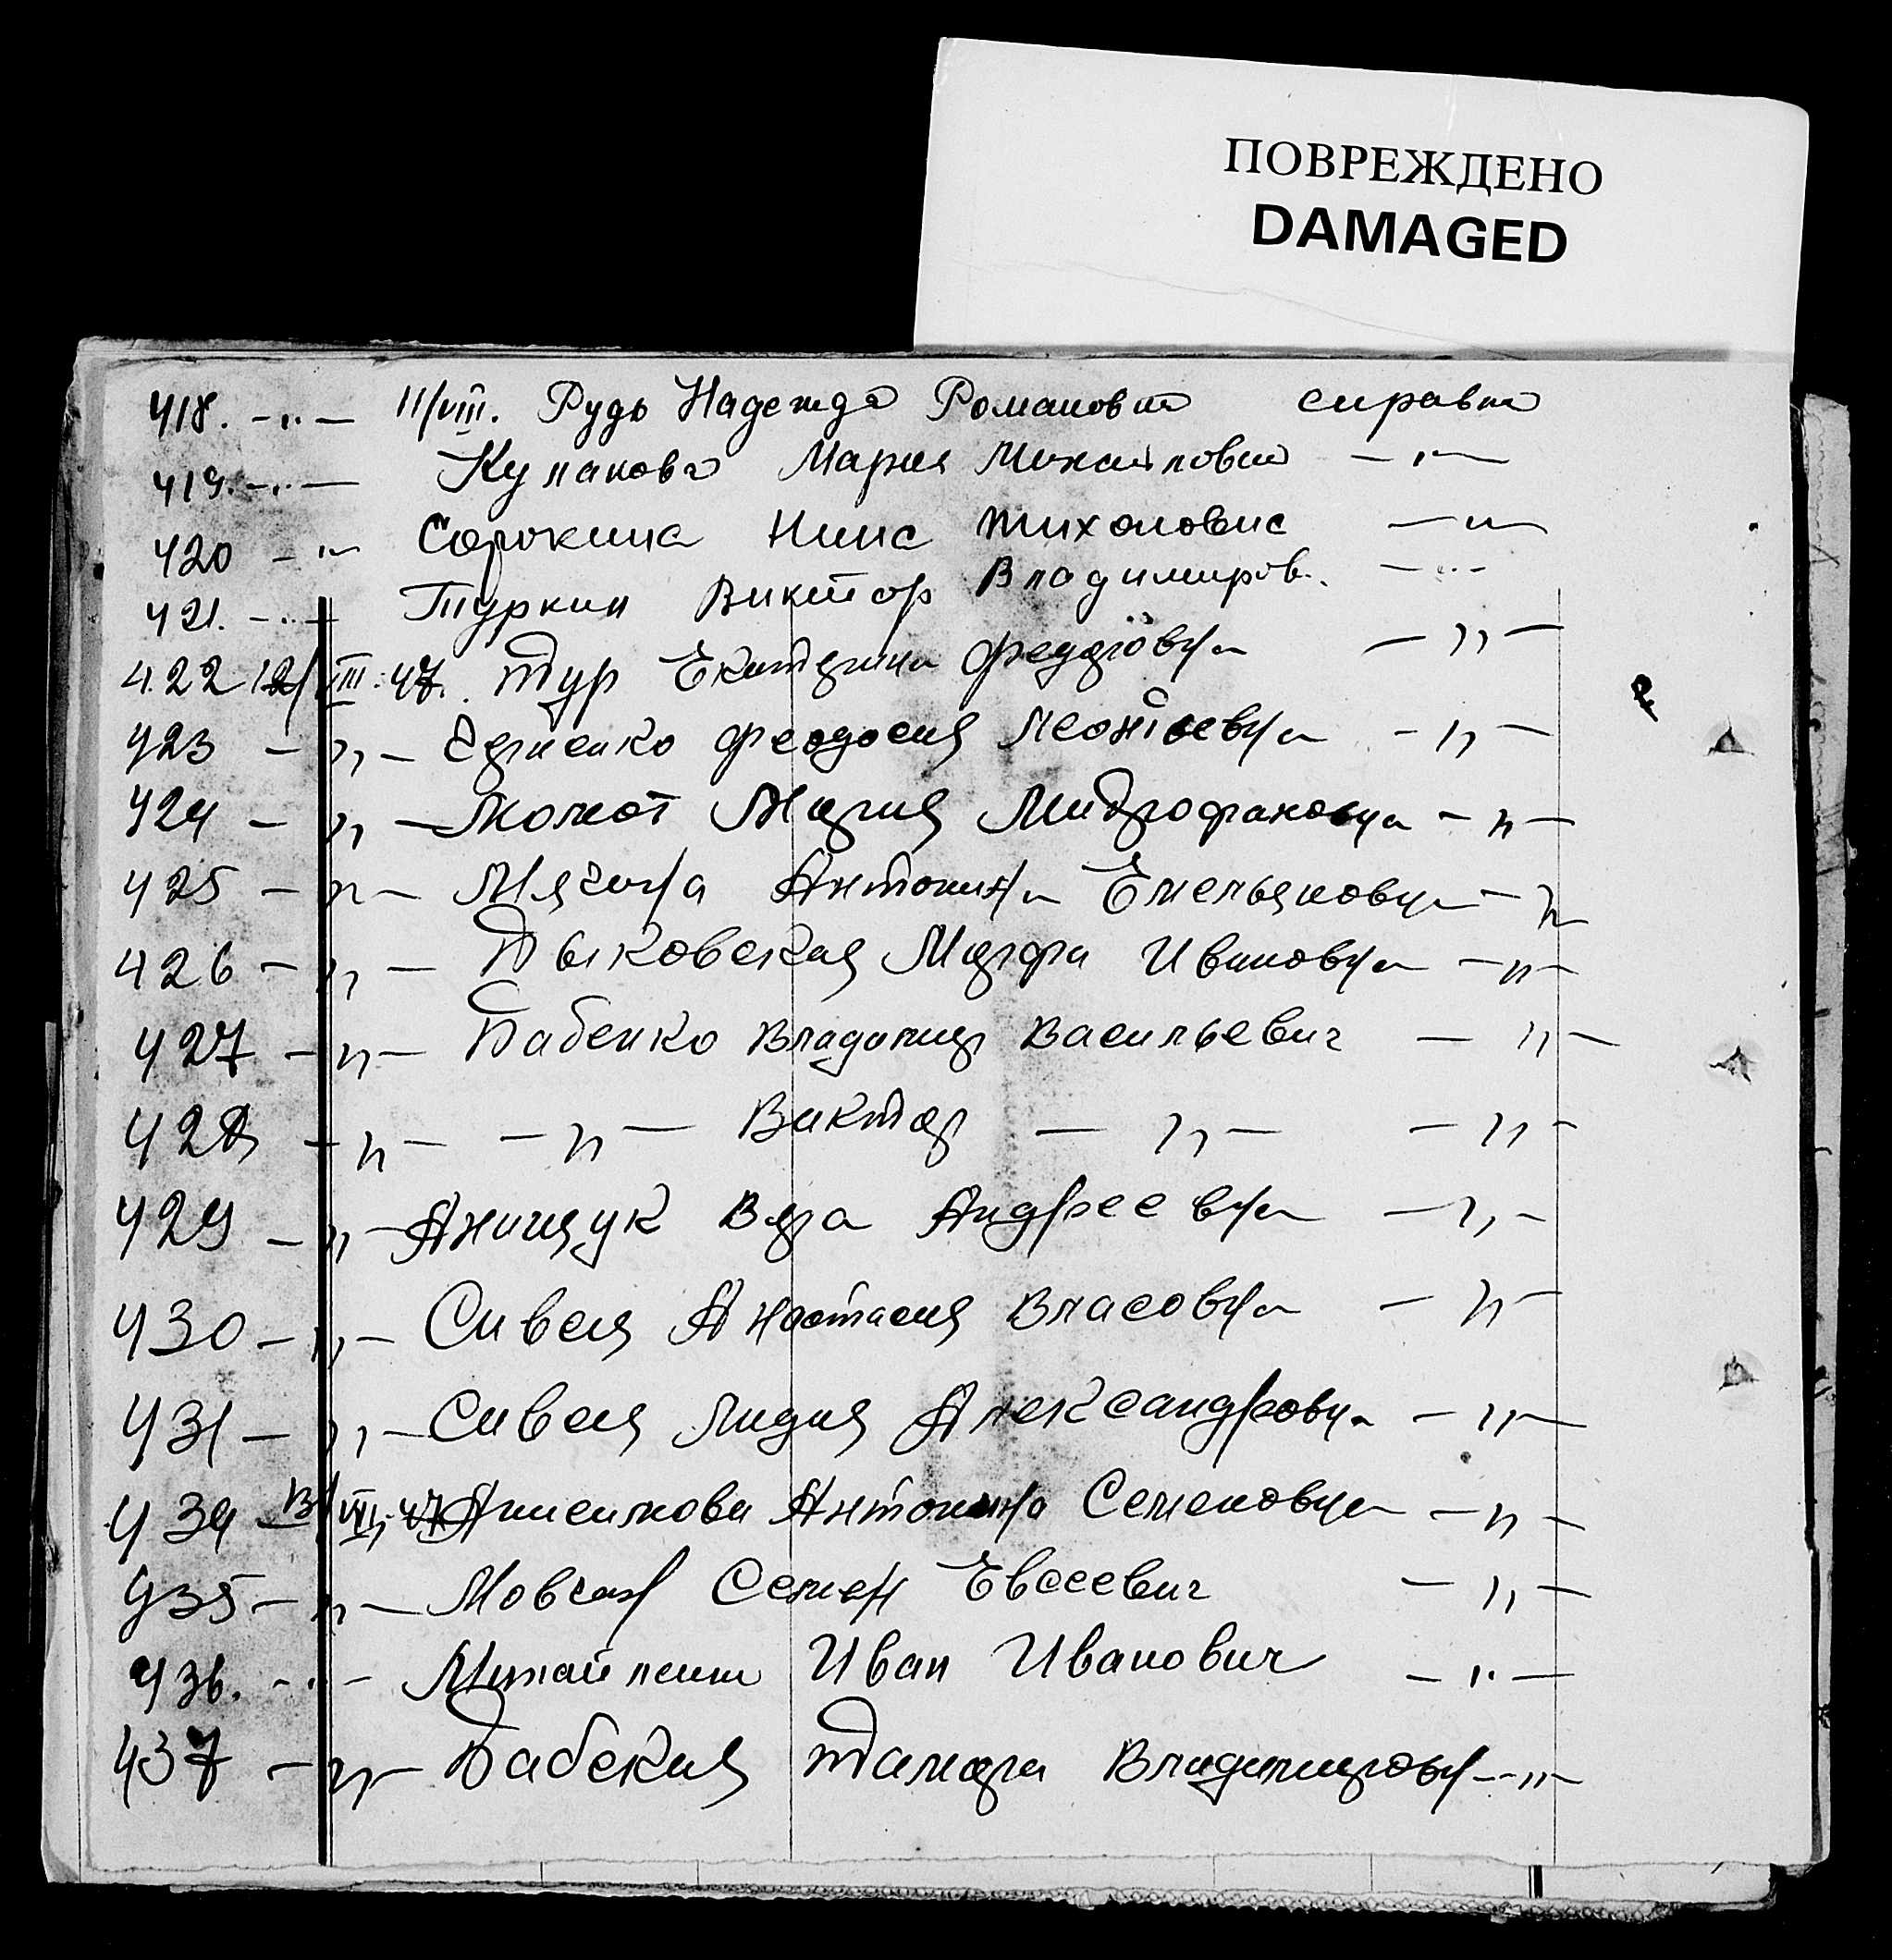 ПОВРЕЖДЕНО
DAMAGED
418. -"- 11/VIII. Рудь Надежда Романовна справка
419. -"- Кулакова Мария Михайловна -"-
420 -"- Сорокина Нина Тихоновна -"-
421. -"- Туркин Виктор Владимиров. -"-
422 12/VIII-47. Тур Екатерина Федоровна -"-
423 -"- Феодосия Леонтьевна -"-
424 -"- Момот Мария Митрофановна -"-
425 -"- Мягина Антонина Емельяновна -"-
426 -"- Быковская Марфа Ивановна -"-
427 -"- Бабенко Владимир Васильевич -"-
428 -"- -"- Виктор -"- -"-
429 -"- Анищук Вера Андреевна -"-
430 -"- Сивая Анастасия Власовна -"-
431 -"- Сивая Лидия Александровна -"-
434 13/VIII-47 Антонина Семеновна -"-
435 -"- Мовсан Семен Евсеевич -"-
436. -"- Иван Иванович -"-
437 -"- Бабская Тамара Владимировн -"-